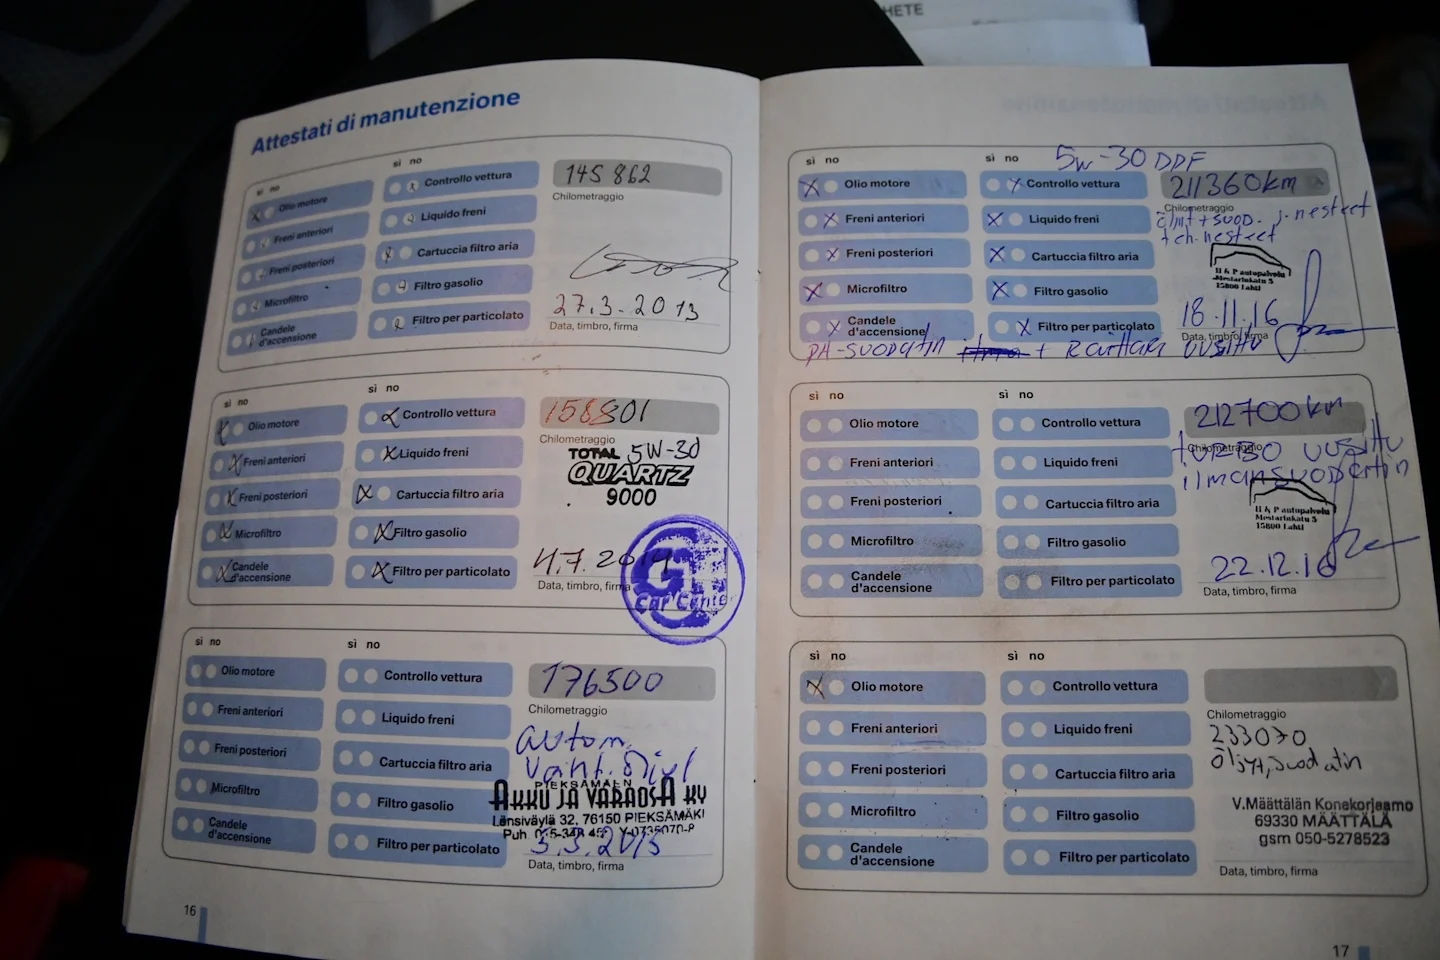 HETE
Attestati di manutenzione
sì no
Olio motore
Freni anteriori
Freni posteriori
Microfiltro
Candele
d'accensione
sì no
Controllo vettura
Liquido freni
Cartuccia filtro aria
Filtro gasolio
Filtro per particolato
145 862
Chilometraggio
27.3.2013
Data, timbro, firma
sì no
Olio motore
Freni anteriori
Freni posteriori
Microfiltro
Candele
d'accensione
sì no
Controllo vettura
Liquido freni
Cartuccia filtro aria
Filtro gasolio
Filtro per particolato
158801
Chilometraggio
TOTAL 5W-30
QUARTZ
9000
4.7.2014
Data, timbro, firma
Car Center
sì no
Olio motore
Freni anteriori
Freni posteriori
Microfiltro
Candele
d'accensione
sì no
Controllo vettura
Liquido freni
Cartuccia filtro aria
Filtro gasolio
Filtro per particolato
176500
Chilometraggio
autom.
vaiht. öljyt
PIEKSÄMÄEN
AKKU JA VARAOSA KY
Länsiväylä 32, 76150 PIEKSÄMÄKI
Puh
3.3.2015
Data, timbro, firma
16
sì no
Olio motore
Freni anteriori
Freni posteriori
Microfiltro
Candele
d'accensione
sì no
5W-30 DPF
Controllo vettura
Liquido freni
Cartuccia filtro aria
Filtro gasolio
Filtro per particolato
211360km
Chilometraggio
ölj.t + suod. j.nesteet
+ ch.nesteet
H & P autopalvelu
Mestarinkatu 5
15800 Lahti
18.11.16
Data, timbro, firma
PA-SUODATIN + RAITTARI UUSITTU
sì no
Olio motore
Freni anteriori
Freni posteriori
Microfiltro
Candele
d'accensione
sì no
Controllo vettura
Liquido freni
Cartuccia filtro aria
Filtro gasolio
Filtro per particolato
212700km
Chilometraggio
TURBO UUSITTU
ilmansuodatin
H & P autopalvelu
Mestarinkatu 5
15800 Lahti
22.12.16
Data, timbro, firma
sì no
Olio motore
Freni anteriori
Freni posteriori
Microfiltro
Candele
d'accensione
sì no
Controllo vettura
Liquido freni
Cartuccia filtro aria
Filtro gasolio
Filtro per particolato
Chilometraggio
233070
Öljyt, suodatin
V.Määttälän Konekorjaamo
69330 MÄÄTTÄLÄ
gsm 050-5278523
Data, timbro, firma
17